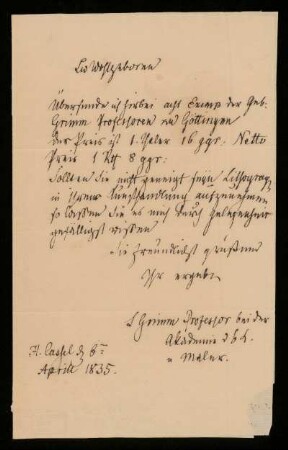 Ew Wohlgeboren
Übersende ich hierbei acht Exemp der Geb.
Grimm Professoren in Göttingen
der Preis ist 1. Thaler 16 ggr. Netto
Preis 1 8 ggr:
Sollten Sie nicht geneigt sein
in Ihrer Kunsthandlung aufzunehmen
so lassen Sie es mich durch Gelegenheit
gefälligst wissen
Sie freundlichst grüßend
Ihr ergebn
L Grimm Professor bei der
Akademie d b K.
u Maler.
Cassel d 6tn
Aprill 1835.